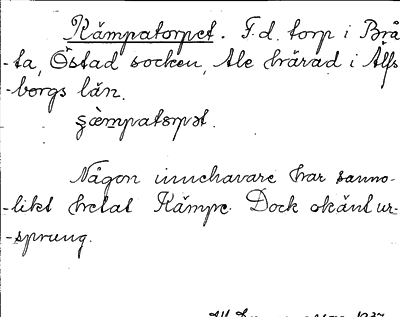 Kämpatorpet. F.d. torp i Brå
-ta, Östad socken, Ale härad i Älfs
-borgs län.
Någon innehavare har sanno-
-likt hetat Kämpe. Dock okänt ur-
-sprung.